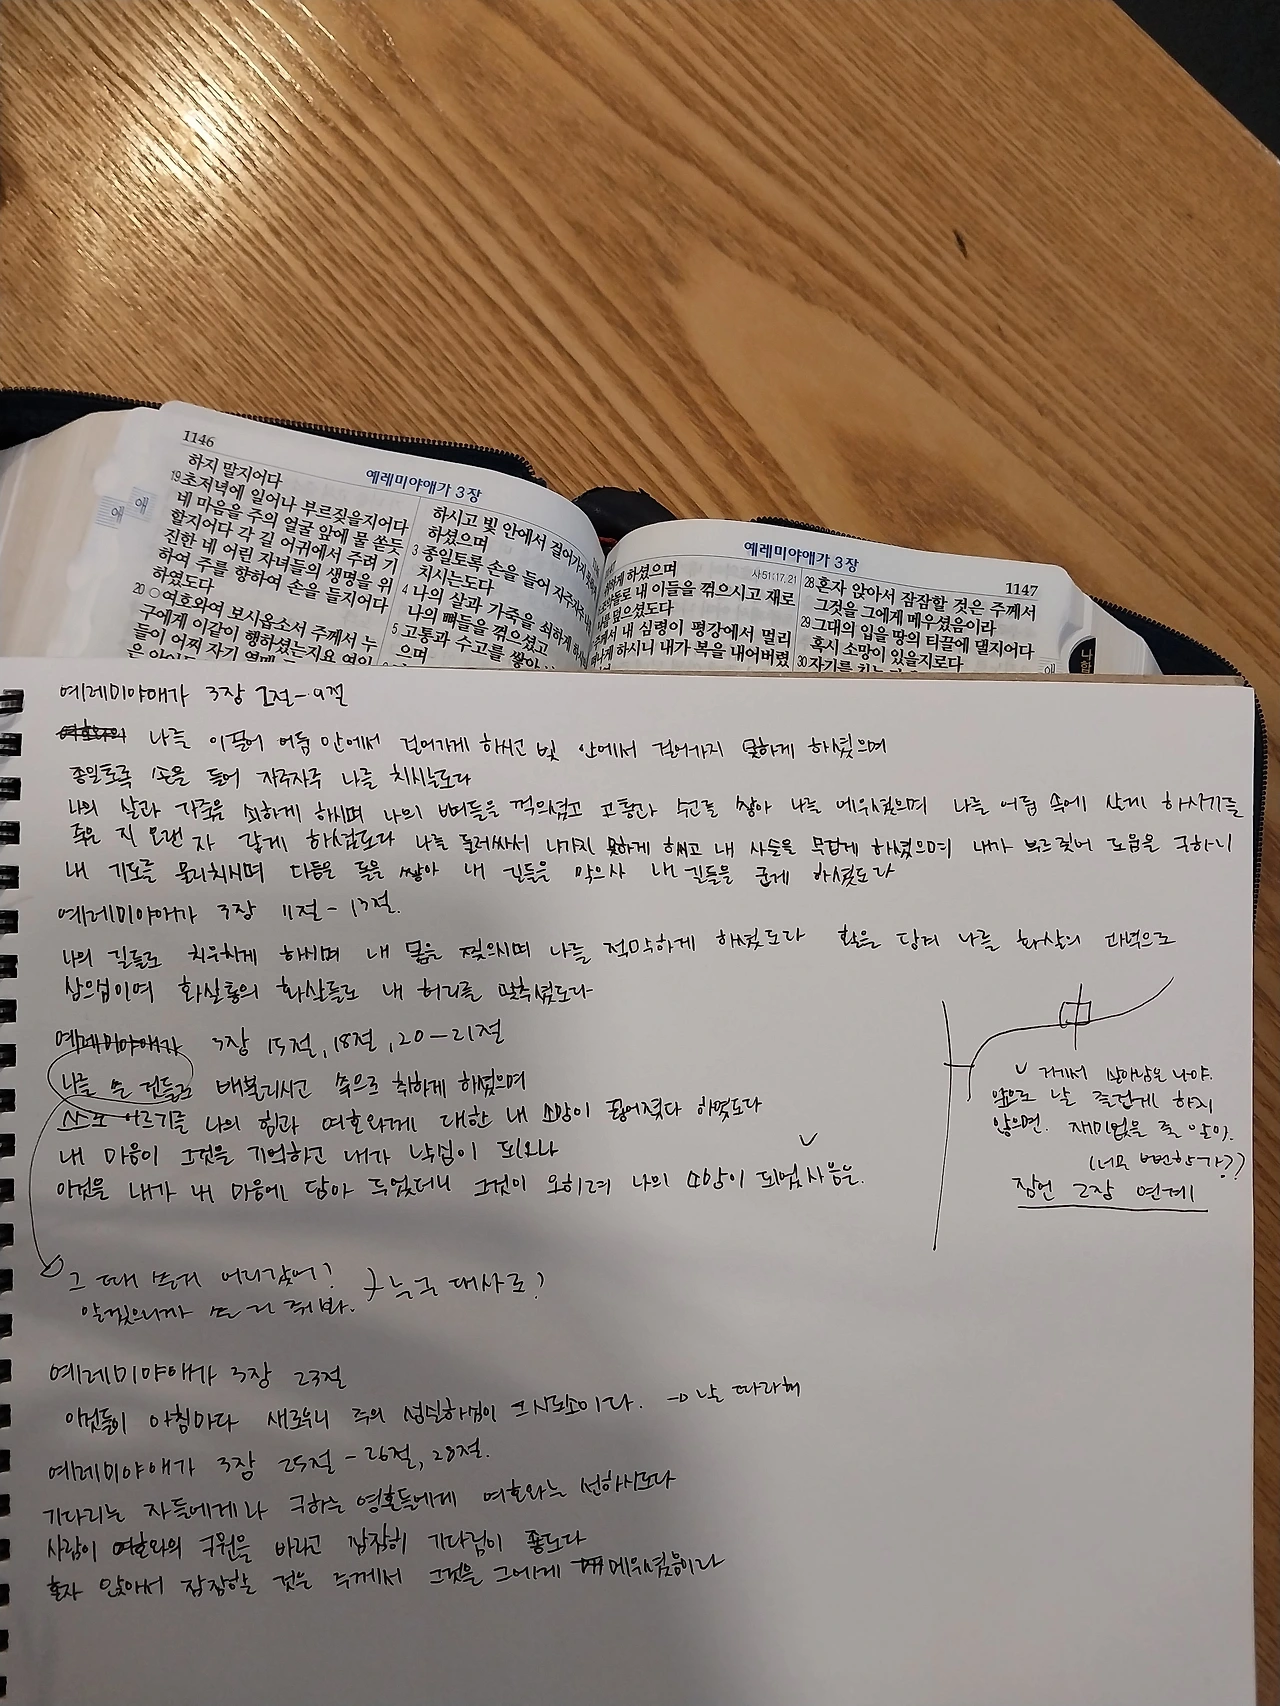 1146
예레미야애가 3장
하지 말지어다
19 초저녁에 일어나 부르짖을지어다
네 마음을 주의 얼굴 앞에 물 쏟듯
할지어다 각 길 어귀에서 주려 기
진한 네 어린 자녀들의 생명을 위
하여 주를 향하여 손을 들지어다
하였도다
20 ○여호와여 보시옵소서 주께서 누
구에게 이같이 행하셨는지요
들이 어찌 자기 열매
애
애
하시고 빛 안에서 걸어가지
하셨으며
3 종일토록 손을 들어 자주자주
치시는도다
4 나의 살과 가죽을 쇠하게 하시며
나의 뼈들을 꺾으셨고
5 고통과 수고를 쌓아
으며
예레미야애가 3장
1147
하게 하셨으며
사51:17,21
내 이들을 꺾으시고 재로
덮으셨도다
주께서 내 심령이 평강에서 멀리
나게 하시니 내가 복을 내어버렸
28 혼자 앉아서 잠잠할 것은 주께서
그것을 그에게 메우셨음이라
29 그대의 입을 땅의 티끌에 댈지어다
혹시 소망이 있을지로다
30 자기를 치는
애
나합
예레미야애가 3장 2절-9절
나를 이끌어 어둠 안에서 걸어가게 하시고 빛 안에서 걸어가지 못하게 하셨으며
종일토록 손을 들어 자주자주 나를 치시는도다
나의 살과 가죽을 쇠하게 하시며 나의 뼈들을 꺽으셨고 고통과 수고를 쌓아 나를 에우셨으며 나를 어둠 속에 살게 하시기를
죽은 지 오랜 자 같게 하셨도다 나를 둘러싸서 나가지 못하게 하시고 내 사슬을 무겁게 하셨으며 내가 부르짖어 도움을 구하나
내 기도를 물리치시며 다듬은 돌을 쌓아 내 길들을 막으사 내 길들을 굽게 하셨도다
예레미야애가 3장 11절-13절.
나의 길들로 치우치게 하시며 내 몸을 찢으시며 나를 적막하게 하셨도다 활을 당겨 나를 화살의 과녁으로
삼으심이여 화살통의 화살들로 내 허리를 맞추셨도다
예레미야애가 3장 15절, 18절, 20-21절
나를 쓴 것들로 배불리시고 쑥으로 취하게 하셨으며
스스로 이르기를 나의 힘과 여호와께 대한 내 소망이 끊어졌다 하였도다
내 마음이 그것을 기억하고 내가 낙심이 되오나
이것을 내가 내 마음에 담아 두었더니 그것이 오히려 나의 소망이 되었사옴은.
거에서 살아남은 나야.
앞으로 날 즐겁게 하지
않으면. 재미없을 줄 알아.
(너무 뻔한가??)
잠언 2장 연계
그 때 쓴거 어디갔어?
알겠으니까 쓴 거 줘봐. 누구 대사로?
예레미야애가 3장 23절
이것들이 아침마다 새로우니 주의 성실하심이 크시도소이다. → 날 따라해
예레미야애가 3장 25절-26절, 28절.
기다리는 자들에게나 구하는 영혼들에게 여호와는 선하시도다
사람이 여호와의 구원을 바라고 잠잠히 기다림이 좋도다
혼자 앉아서 잠잠할 것은 주께서 그것을 그에게 메우셨음이라